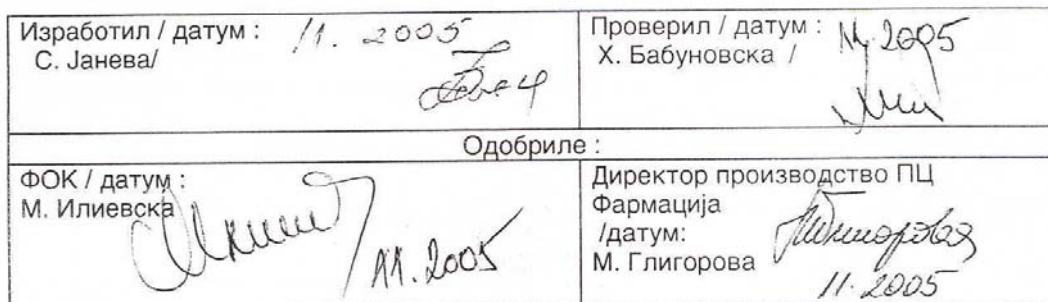 Изработил / датум : 11. 2005
С. Јанева/
Проверил / датум : 11. 2005
Х. Бабуновска /
Одобриле :
ФОК / датум :
М. Илиевска
11. 2005
Директор производство ПЦ
Фармација
/датум:
М. Глигорова
11. 2005